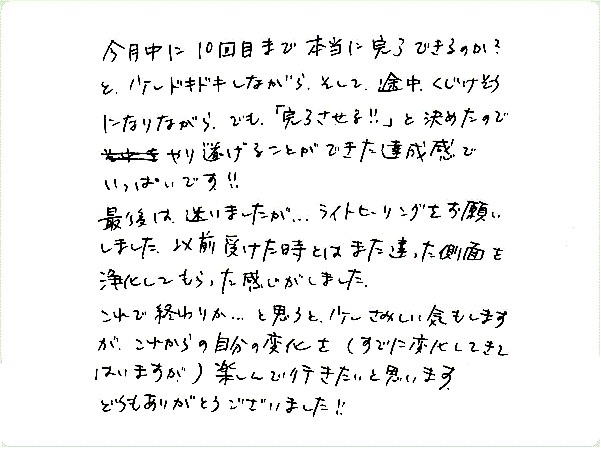 今月中に10回目まで本当に完了できるのか?
と、少しドキドキしながら、そして、途中、くじけそう
になりながら、でも、「完了させる!!」と決めたので
やり遂げることができた達成感で
いっぱいです!!
最後は、迷いましたが…ライトヒーリングをお願い
しました。以前受けた時とはまた違った側面を
浄化してもらった感じがしました。
これで終わりか…と思うと、少しさみしい気もします
が、これからの自分の変化を(すでに変化してきて
はいますが)楽しんで行きたいと思います。
どうもありがとうございました!!